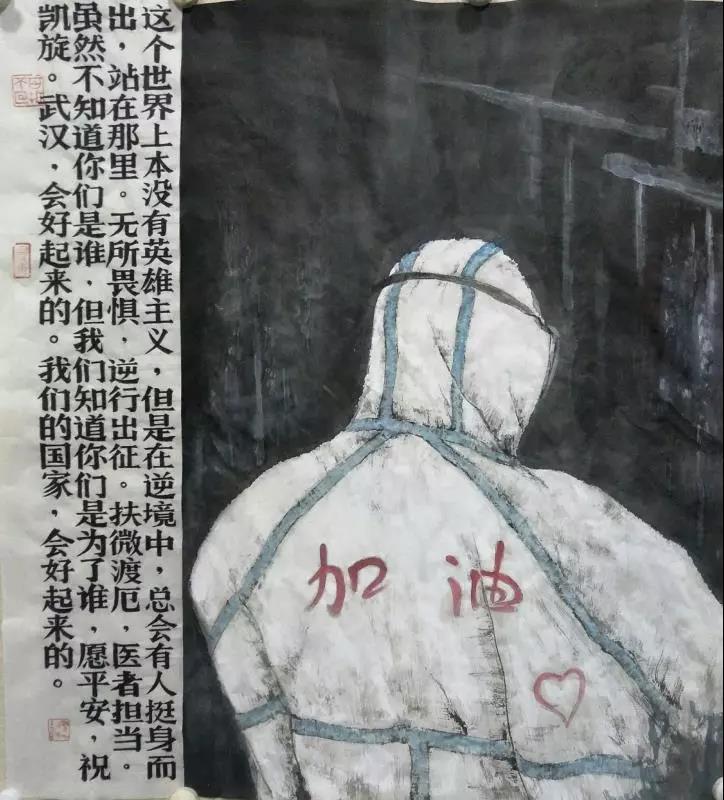 这个世界上本没有英雄主义，但是在逆境中，总会有人挺身而
出，站在那里。无所畏惧，逆行出征。扶微渡厄，医者担当。
虽然不知道你们是谁，但我们知道你们是为了谁，愿平安，祝
凯旋。武汉，会好起来的。我们的国家，会好起来的。
加油